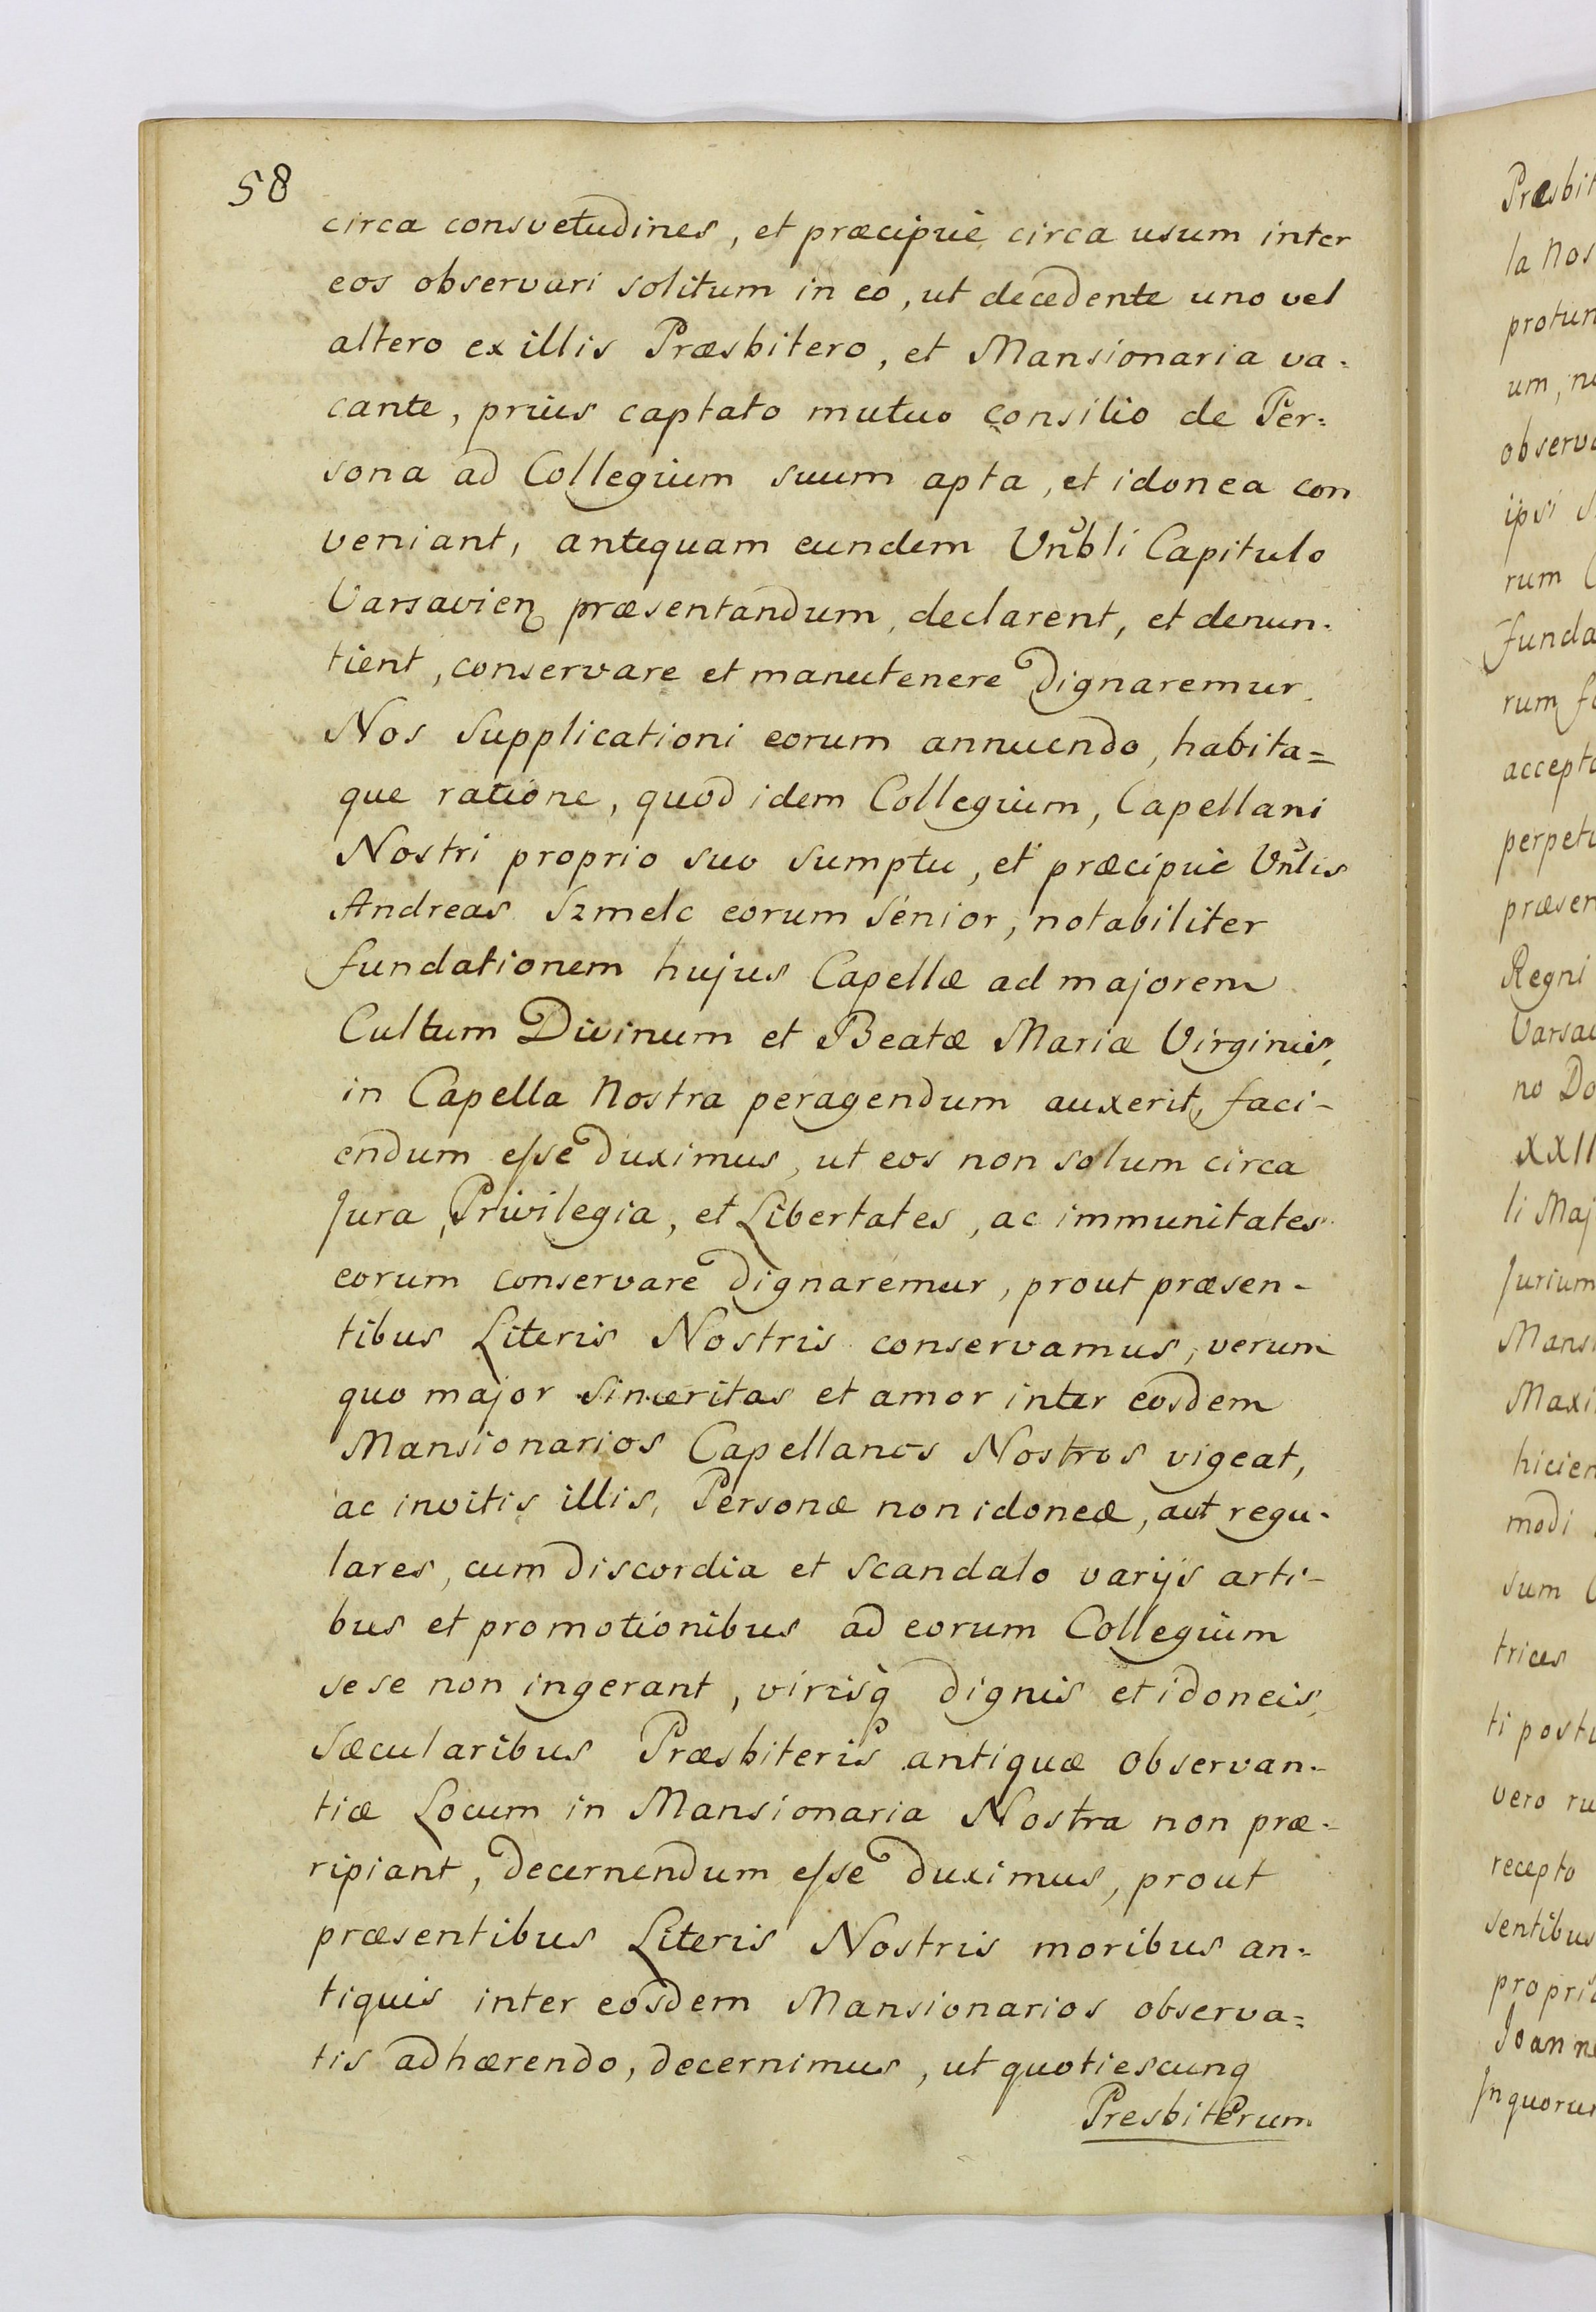 58
circa consvetudines, et præcipuè circa usum inter
eos observari solitum in eo, ut decedente uno vel
altero ex illis Præsbitero, et Mansionaria va-
cante, prius captato mutuo consilio de Per=
sona ad Collegium suum apta, et idonea con
veniant, antequam eundem Vnbli Capitulo
Varsavien præsentandum, declarent, et denun-
tient, conservare et manutenere dignaremur.
Nos Supplicationi eorum annuendo, habita=
que ratione, quod idem Collegium, Capellani
Nostri proprio suo sumptu, et præcipuè Vnlis
Andreas Szmelc eorum Senior, notabiliter
fundationem hujus Capellæ ad majorem
Cultum Divinum et Beatæ Mariæ Virginis,
in Capella Nostra peragendum auxerit, faci-
endum esse duximus, ut eos non solum circa
Jura, Privilegia, et Libertates, ac immunitates
eorum conservare dignaremur, prout præsen-
tibus Literis Nostris conservamus, verum
quo major sinceritas et amor inter eosdem
Mansionarios Capellanos Nostros vigeat,
ac invitis illis, Personæ non idoneæ, aut regu-
lares, cum discordia et scandalo varijs arti-
bus et promotionibus ad eorum Collegium
sese non ingerant, virisq̀ dignis et idoneis,
Sæcularibus Præsbiteris antiquæ observan-
tiæ Locum in Mansionaria Nostra non præ-
ripiant, decernendum esse duximus, prout
præsentibus Literis Nostris moribus an-
tiquis inter eosdem Mansionarios observa=
tis adhærendo, decernimus, ut quotiescunq
Presbiterum
Præsbit
la Nos
protun
um, n
observa
ipsi s
rum C
funda
rum f
accepta
perpetu
præsen
Regni
Varsav
no Do
XXII
li Maj
Jurium
Mansi
Maxi
hicien
modi
sum C
trices
ti postu
vero ru
recepto
sentibus
propria
Joanne
In quorum